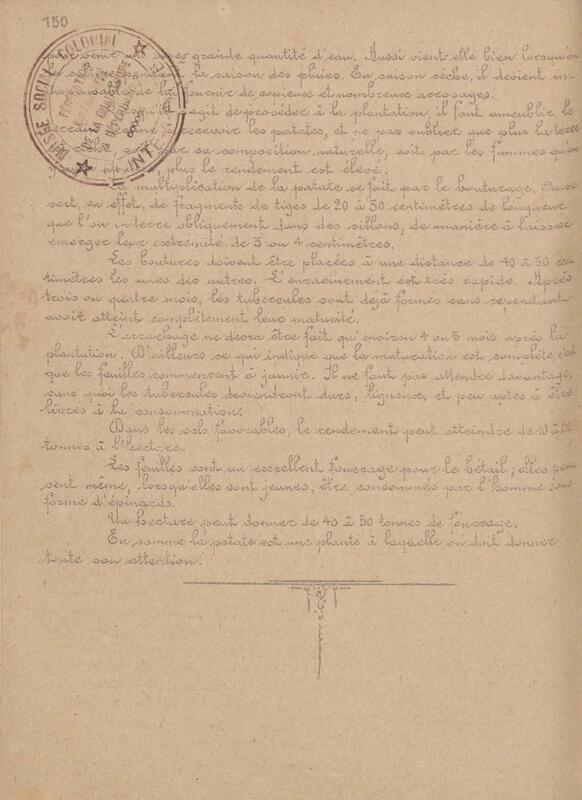 150
MUSÉE SOCIAL COLONIAL
grande quantité d'eau. Aussi vient-elle bien lorsqu'on
la saison des pluies. En saison sèche, il devient in-
fournir de copieux et nombreux arrosages.
agit de procéder à la plantation, il faut ameublir le
recevoir les patates, et ne pas oublier que plus la terre
sa composition naturelle, soit par les fumures qu'on
plus le rendement est élevé.
La multiplication de la patate se fait par le bouturage. On se
sert, en effet, de fragments de tiges de 20 à 30 centimètres de longueur
que l'on interre obliquement dans des sillons, de manière à laisser
émerger leur extrémité de 3 ou 4 centimètres.
Les boutures doivent être placées à une distance de 40 à 50 cen-
timètres les unes des autres. L'enracinement est très rapide. Après
trois ou quatre mois, les tubercules sont déjà formés sans cependant
avoir atteint complètement leur maturité.
L'arrachage ne devra être fait qu'environ 4 ou 5 mois après la
plantation. D'ailleurs ce qui indique que la maturation est complète, c'est
que les feuilles commencent à jaunir. Il ne faut pas attendre davantage,
sans quoi les tubercules deviendront durs, ligneux, et peu aptes à être
livrés à la consommation.
Dans les sols favorables, le rendement peut atteindre de
tonnes à l'hectare.
Les feuilles sont un excellent fourrage pour le bétail; elles peu-
vent même, lorsqu'elles sont jeunes, être consommés par l'homme sous
forme d'épinards.
Un hectare peut donner de 40 à 50 tonnes de fourrage.
En somme la patate est une plante à laquelle on doit donner
toute son attention.